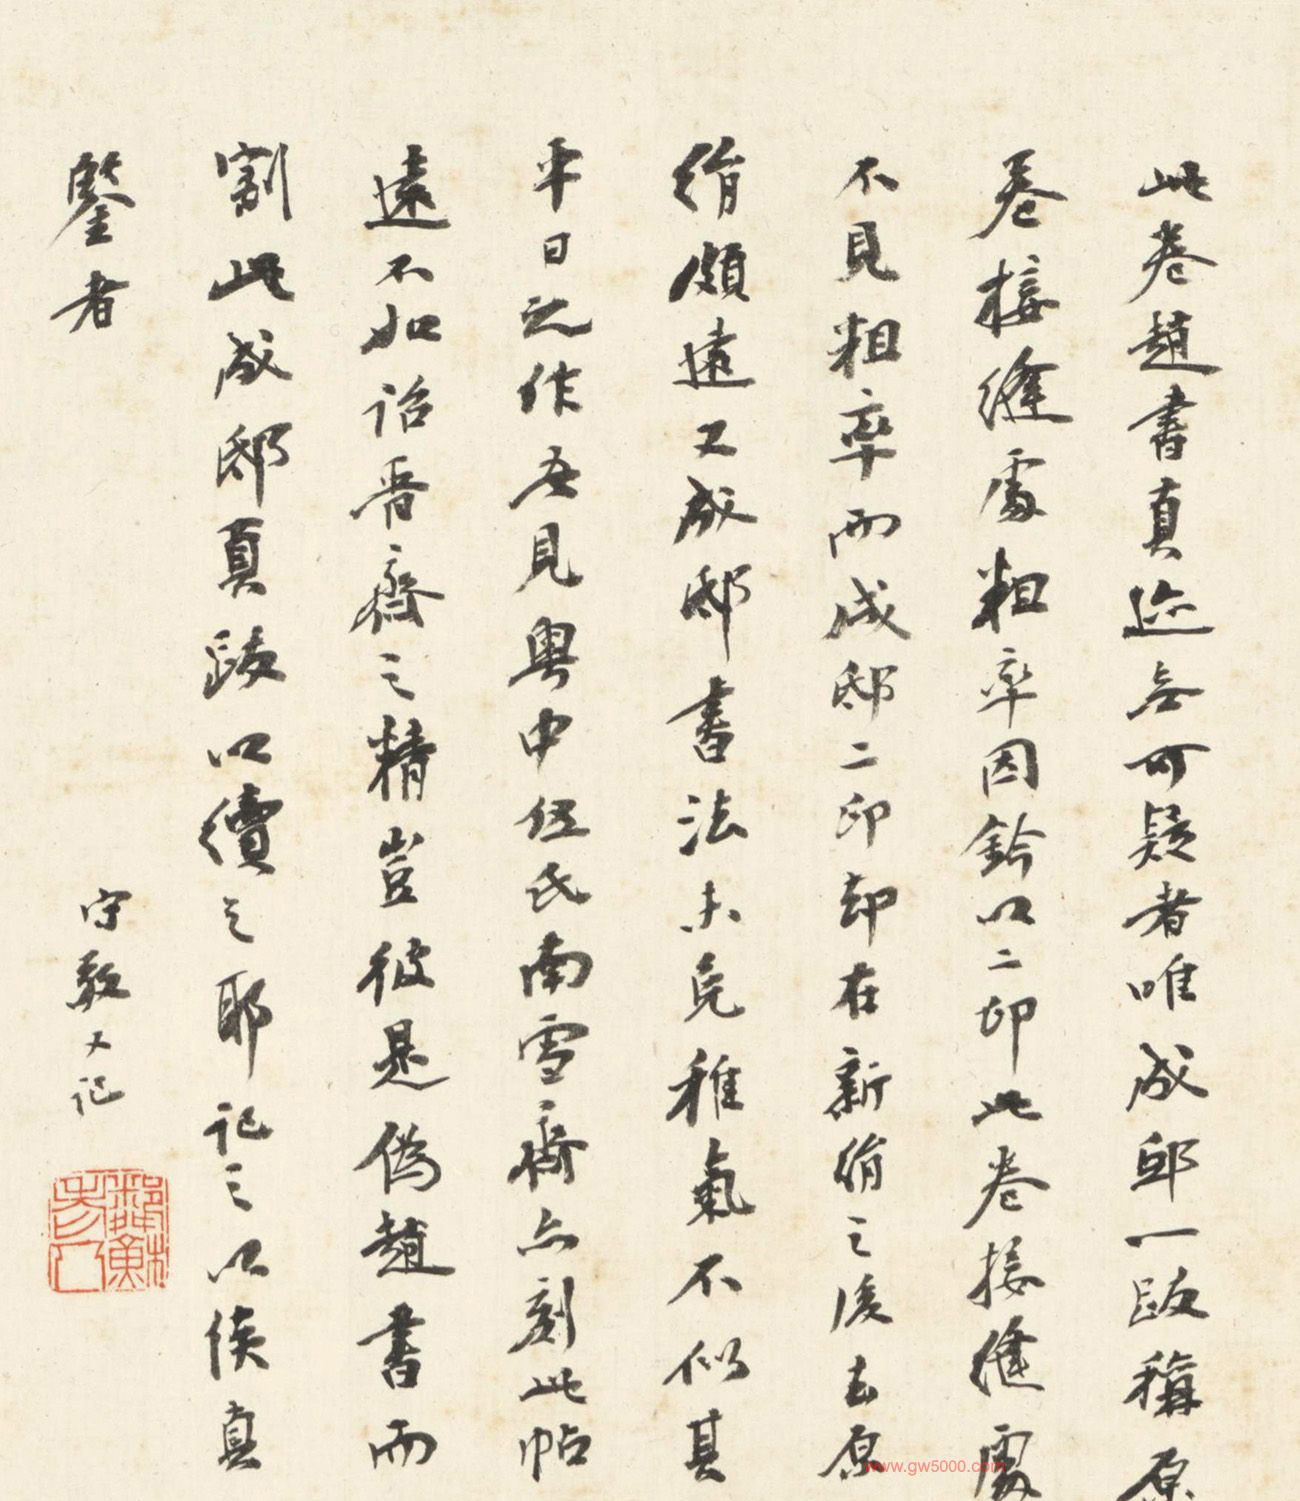 此卷趙書真迹無可疑者唯成邸一跋稱原
卷接縫處粗率因鈐以二印此卷接縫處
不見粗率而成邸二印却在新絹之後去原
絹頗遠又成邸書法未免稚氣不似其
平日之作吾見粵中伍氏南雪齋亦刻此帖
遠不如詒晉齋之精豈彼是偽趙書而
割此成邸真跋以續之耶記之以俟真
鑒者
守敬又記
鄰蘇老人
www.gw5000.com